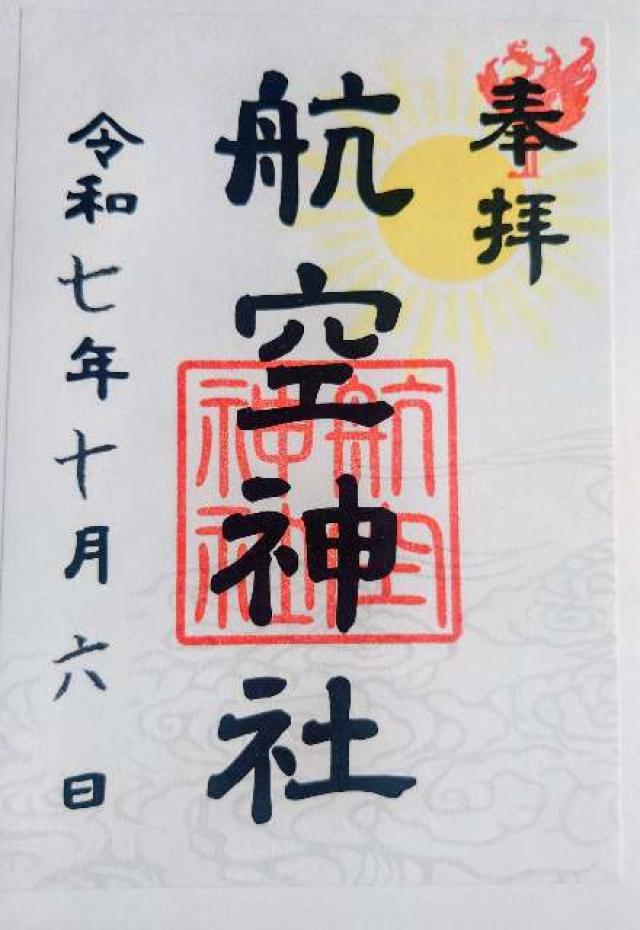 奉拝
航空神社
航空神社
令和七年十月六日